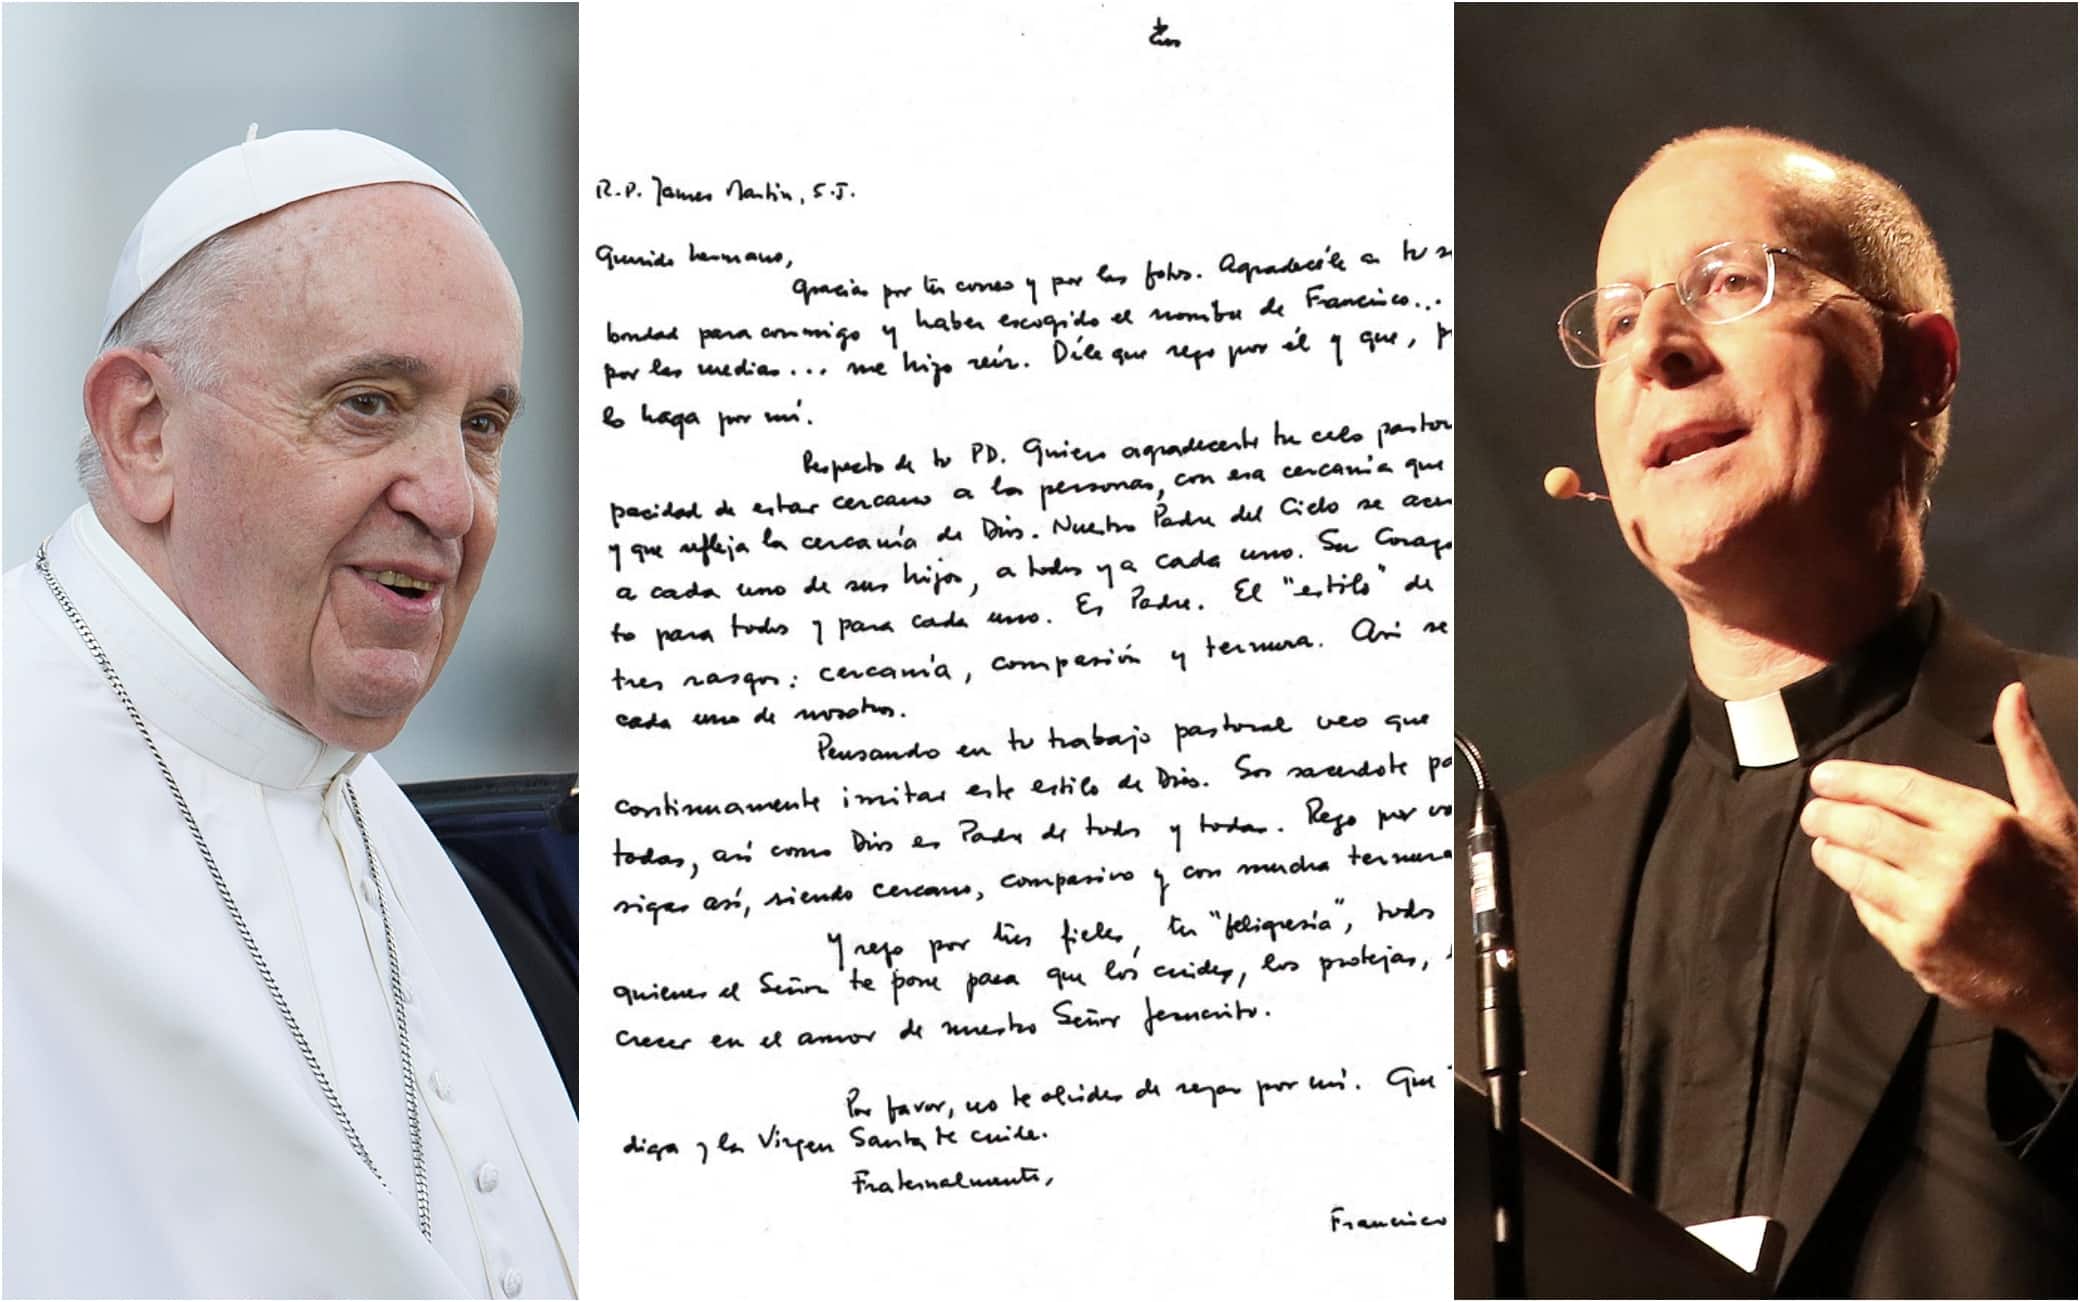 R.P. James Martin, S.J.
Querido hermano,
Gracias por tu correo y por las fotos. Agradecéle a tu s
bondad para conmigo y haber escogido el nombre de Francisco...
por las medias... me hizo reír. Dile que rezo por él y que, p
lo haga por mí.
Respecto de tu PD. Quiero agradecerte tu celo pastor
pacidad de estar cercano a las personas, con esa cercanía que
y que refleja la cercanía de Dios. Nuestro Padre del Cielo se acer
a cada uno de sus hijos, a todos y a cada uno. Su Corazo
to para todos y para cada uno. Es Padre. El "estilo" de
tres rasgos: cercanía, compasión y ternura. Así se
cada uno de nosotros.
Pensando en tu trabajo pastoral veo que
continuamente imitar este estilo de Dios. Sos sacerdote pa
todas, así como Dios es Padre de todos y todas. Rezo por vo
sigas así, siendo cercano, compasivo y con mucha ternura
Y rezo por tus fieles, tu "feligresía", todos
quienes el Señor te pone para que los cuides, los protejas,
crecer en el amor de nuestro Señor Jesucristo.
Por favor, no te olvides de rezar por mí. Que
diga y la Virgen Santa te cuide.
Fraternalmente,
Francisco